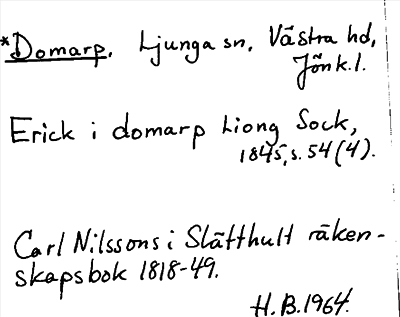 *Domarp. Ljunga sn, Västra hd,
Jönk.l.
Erick i domarp Liong Sock,
1845, s. 54 (4).
Carl Nilssons i Slätthult räken-
skapsbok 1818-49.
H.B. 1964.